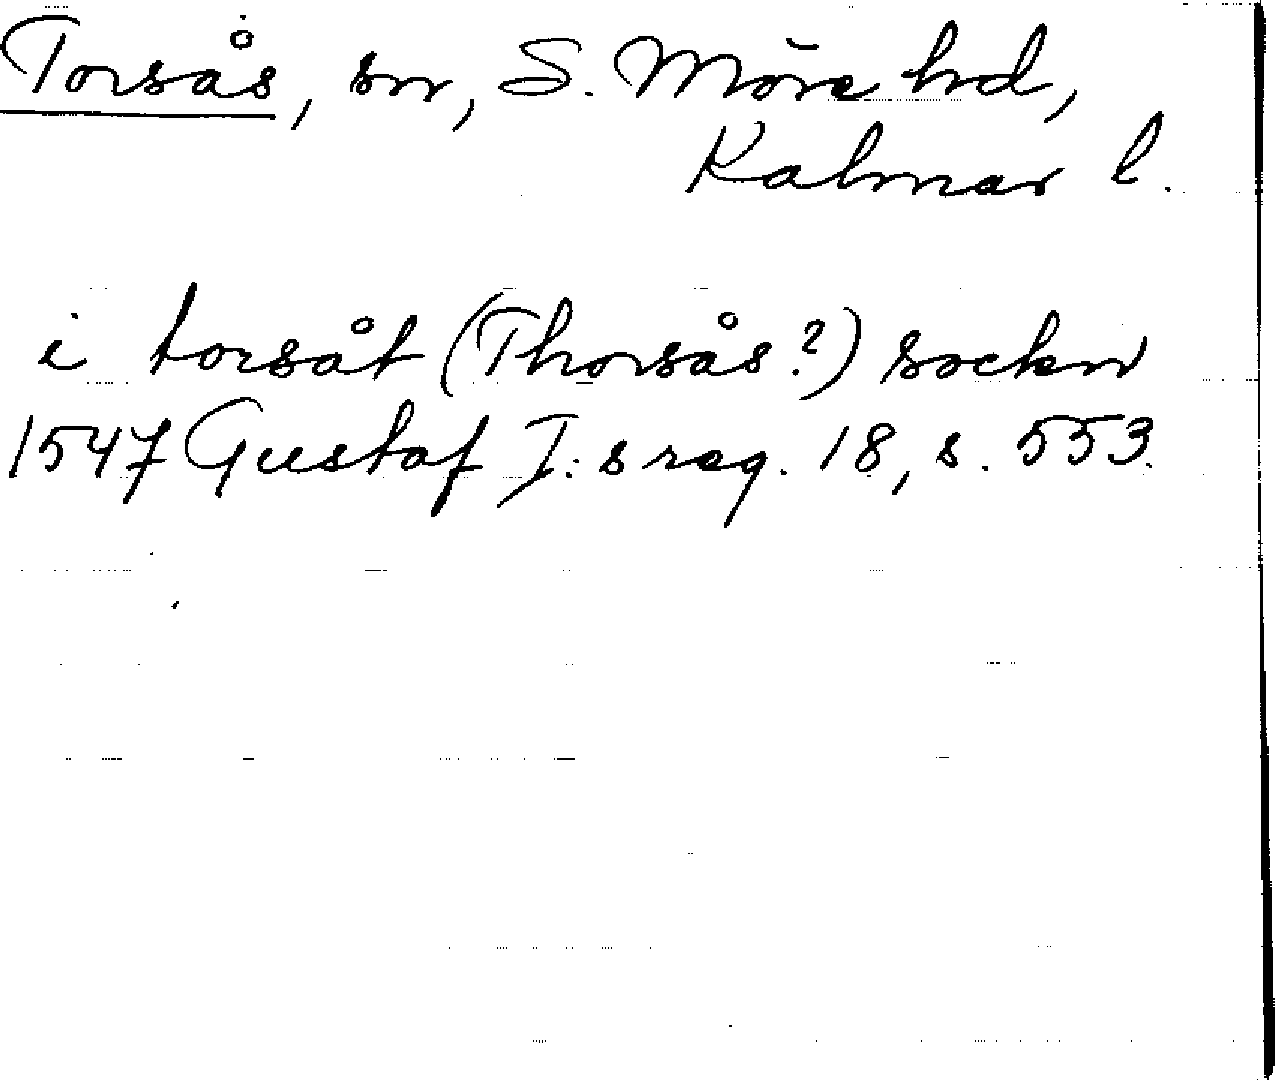 Torsås, sn, S. Möre hd,
Kalmar l.
i torsåt (Thorsås?) sockn
1547 Gustaf I:s reg. 18, s. 553.